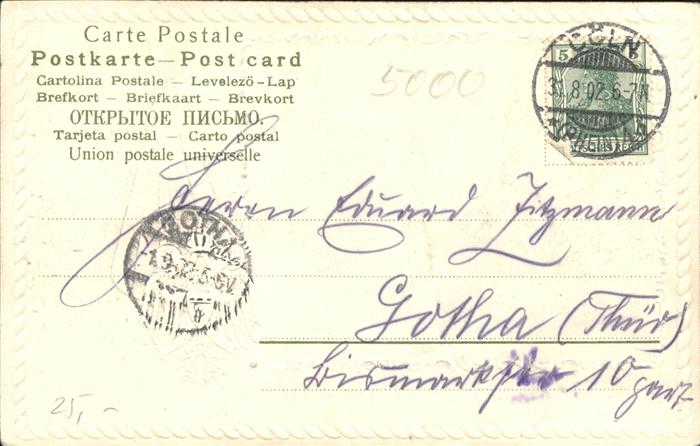 Carte Postale
Postkarte — Post card
Cartolina Postale — Levelezö-Lap
Brefkort — Briefkaart — Brevkort
ОТКРЫТОЕ ПИСЬМО.
Tarjeta postal — Carto postal
Union postale universelle
5000
5
CÖLN
31.8.02.6-7N
(RHEIN)
Herrn Eduard Jitzmann
GOTHA
1.9.02.5-6V
Gotha (Thür)
Bismarkstr 10
25,-